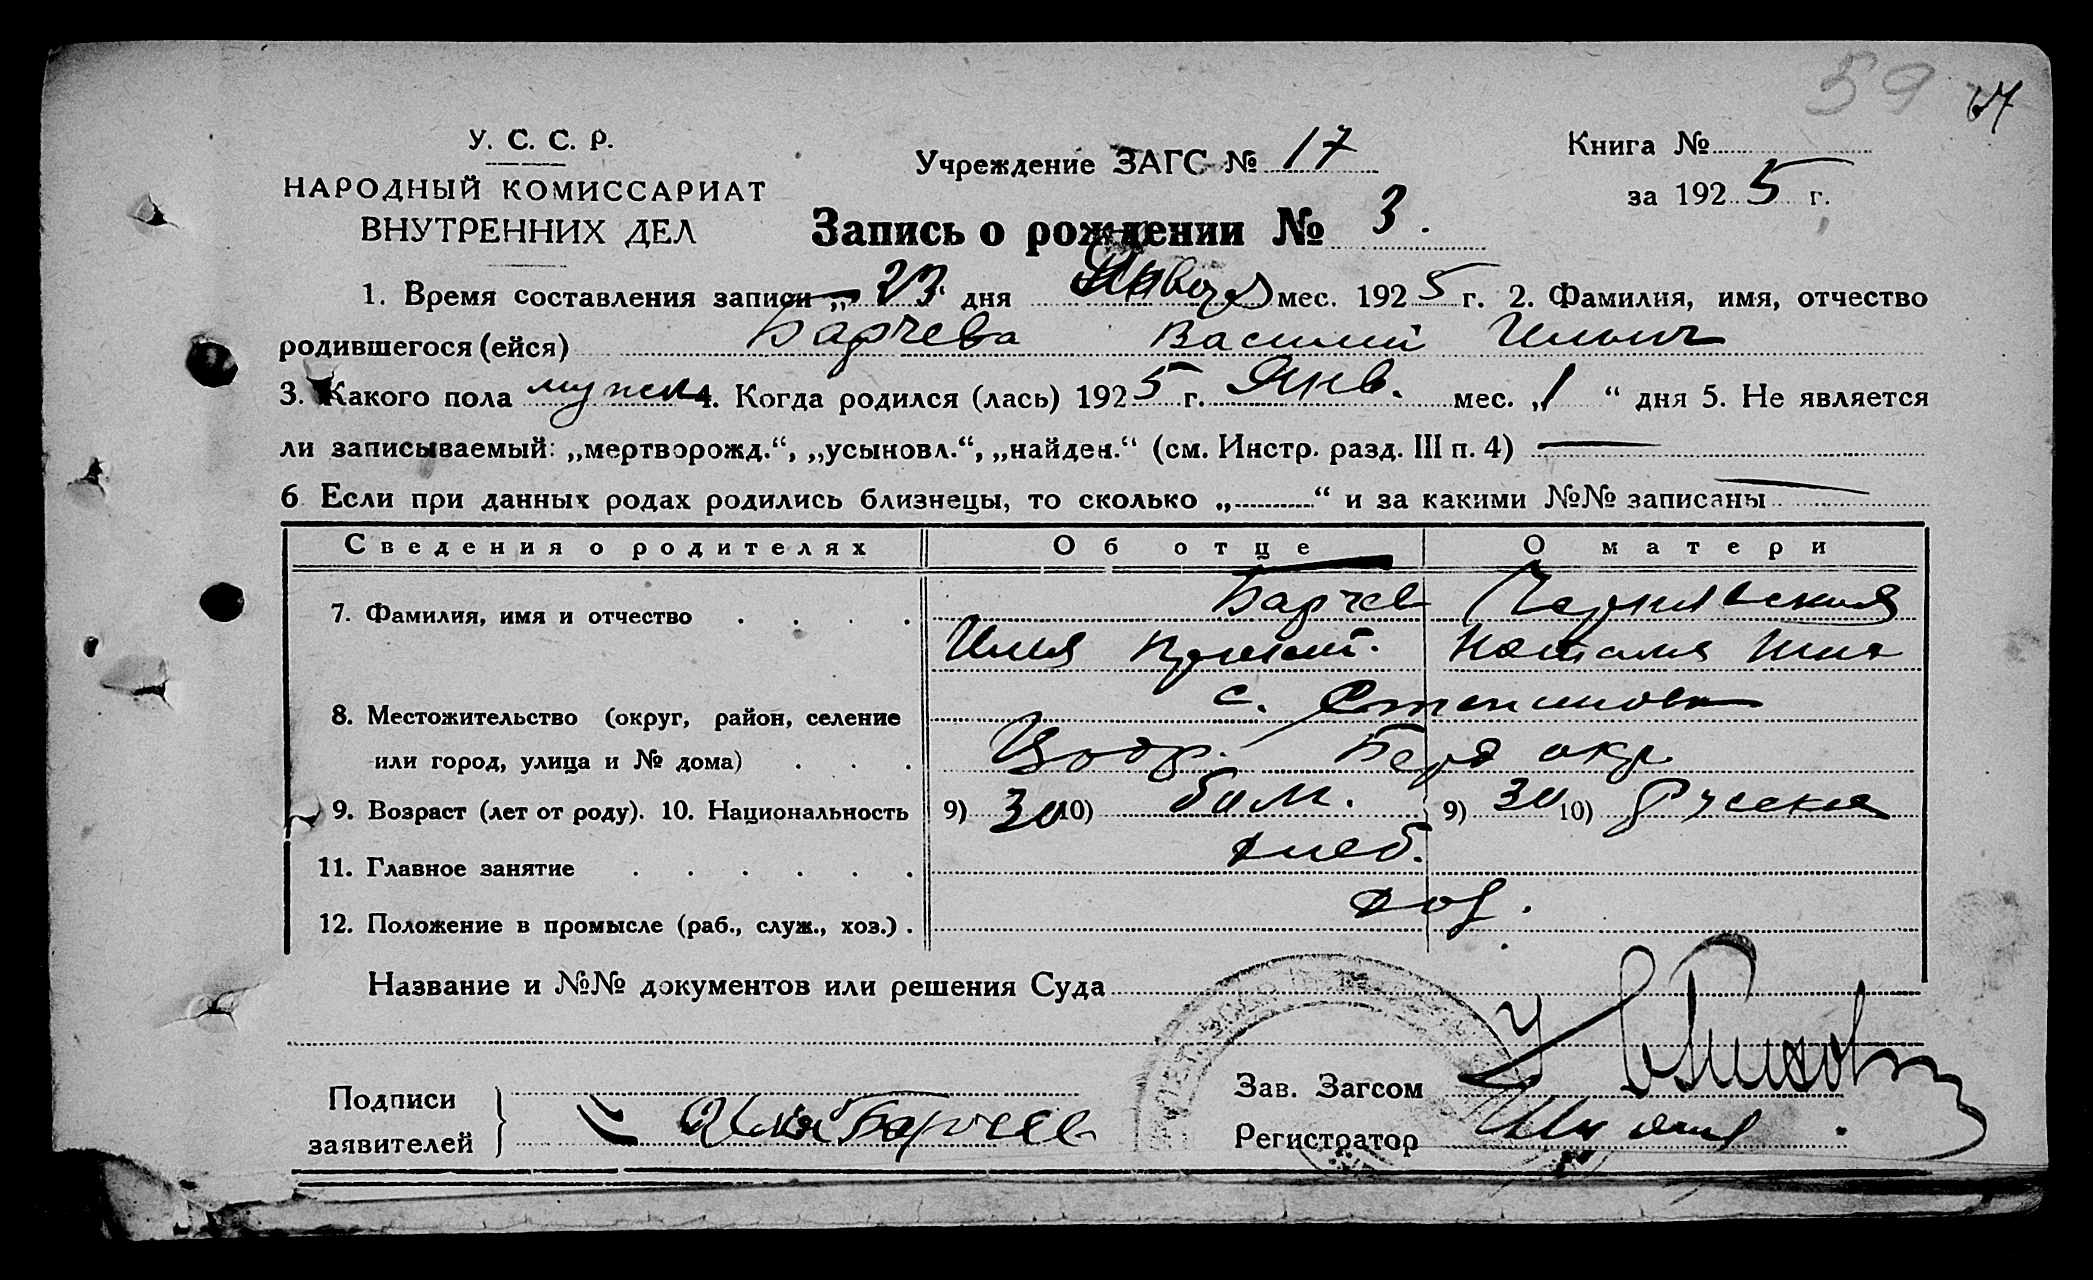 59
У. С. С. Р.
НАРОДНЫЙ КОМИССАРИАТ
ВНУТРЕННИХ ДЕЛ
Учреждение ЗАГС № 17
Книга №
за 1925 г.
Запись о рождении № 3.
1. Время составления записи „23“ дня Января мес. 1925 г. 2. Фамилия, имя, отчество
родившегося (ейся) Барчева Василий Ильич
3. Какого пола мужск 4. Когда родился (лась) 1925 г. Янв. мес. „1“ дня 5. Не является
ли записываемый: „мертворожд.“, „усыновл.“, „найден.“ (см. Инстр. разд. III п. 4) —
6 Если при данных родах родились близнецы, то сколько „ “ и за какими №№ записаны —
Сведения о родителях Об отце О матери
7. Фамилия, имя и отчество Барчев
Илия Наталия
8. Местожительство (округ, район, селение с.
или город, улица и № дома) окр
9. Возраст (лет от роду). 10. Национальность 9) 30 10) 9) 30 10) Русская
11. Главное занятие хлеб.
12. Положение в промысле (раб., служ., хоз.) хоз.
Название и №№ документов или решения Суда
Подписи
заявителей Илия Барчев
Зав. Загсом
Регистратор